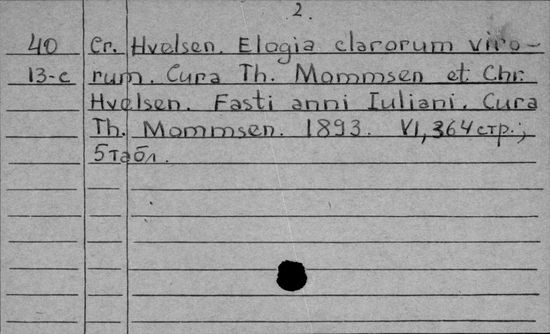 2.
40 Cr. Hvelsen. Elogia clarorum viro-
13-c rum. Cura Th. Mommsen et Chr.
Hvelsen. Fasti anni Iuliani. Cura
Th. Mommsen. 1893. VI, 364 стр.;
5 табл.